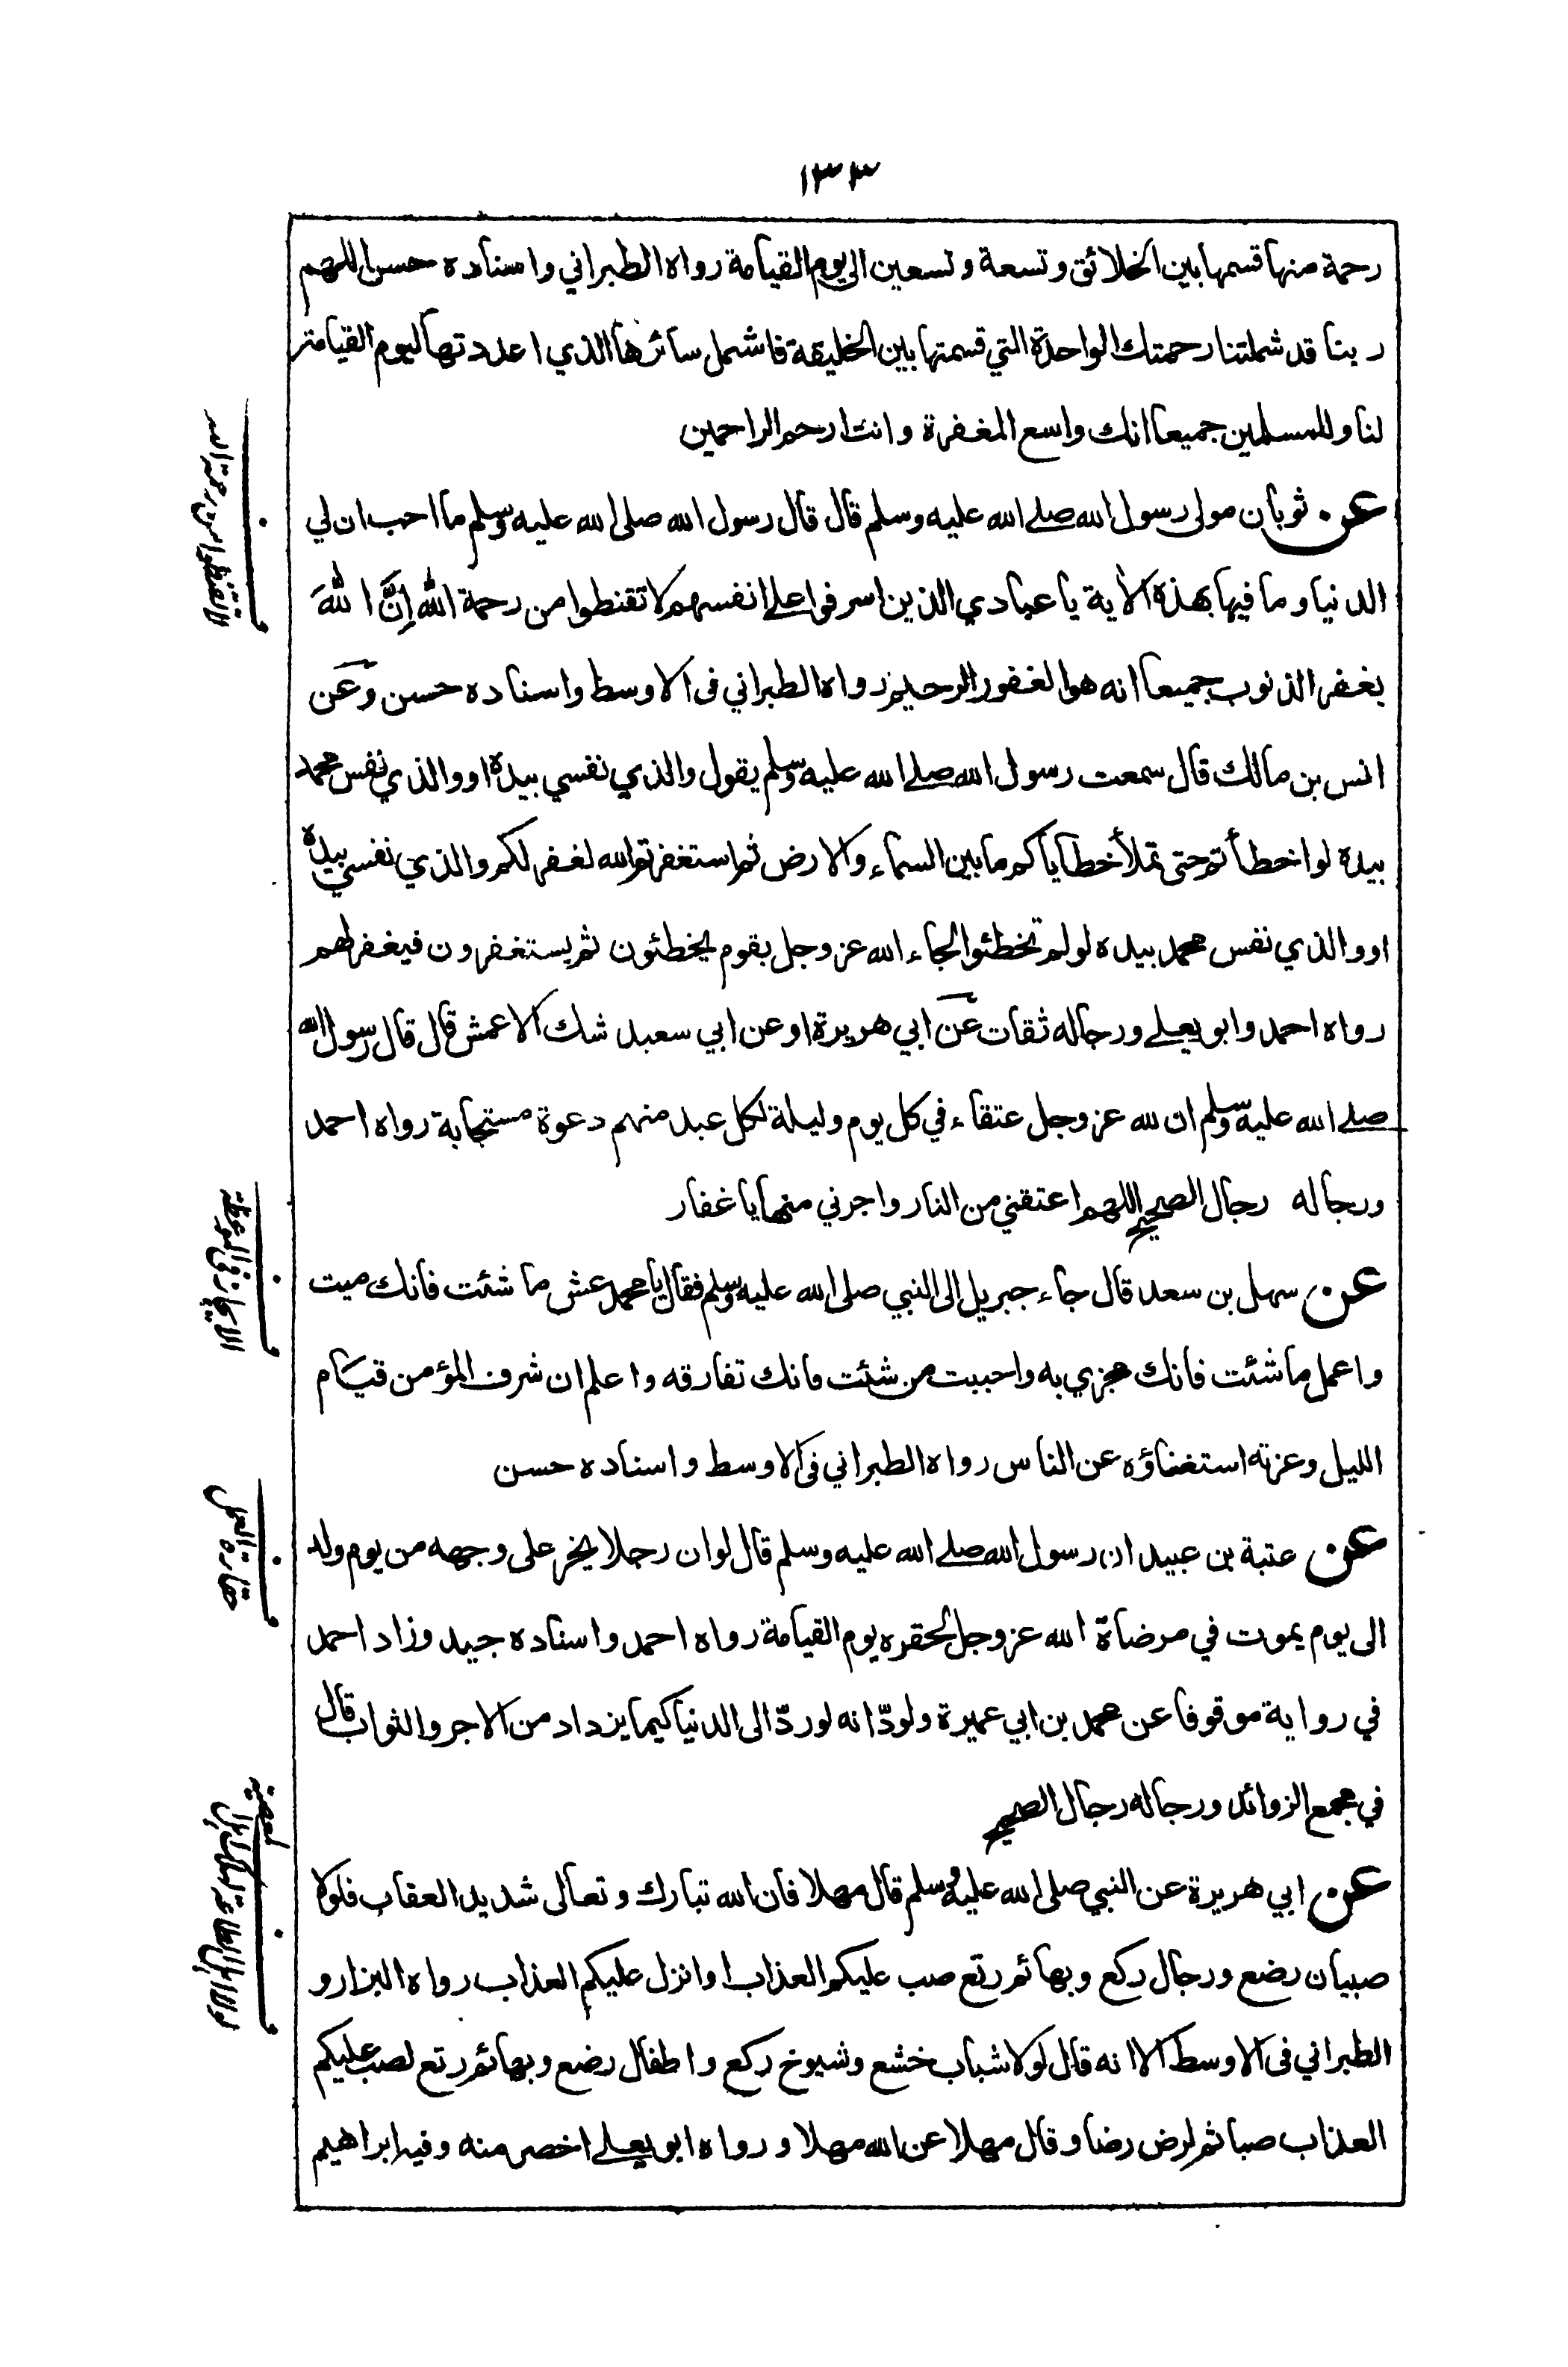 ١٣٣
رحمة منها قسمها بين الخلائق وتسعة وتسعين الى يوم القيامة رواه الطبراني واسناده حسن اللهم
ربنا قد شملتنا رحمتك الواحدة التي قسمتها بين الخليقة فاشمل سائرها الذي اعددتها ليوم القيامة
لنا وللمسلمين جميعا انك واسع المغفرة وانت ارحم الراحمين
عن ثوبان مولى رسول الله صلى الله عليه وسلم قال قال رسول الله صلى الله عليه وسلم ما احب ان لي
الدنيا وما فيها بهذه الاية يا عبادي الذين اسرفوا على انفسهم لا تقنطوا من رحمة الله اِنَّ اللهَ
يغفر الذنوب جميعا انه هو الغفور الرحيم رواه الطبراني فى الاوسط واسناده حسن وعن
انس بن مالك قال سمعت رسول الله صلى الله عليه وسلم يقول والذي نفسي بيده او والذي نفس محمد
بيده لو اخطأتم حتى تملأ خطاياكم ما بين السماء والارض ثم استغفرتم الله لغفر لكم والذي نفسي بيده
او والذي نفس محمد بيده لو لم تخطئوا لجاء الله عز وجل بقوم يخطئون ثم يستغفرون فيغفر لهم
رواه احمد وابو يعلى ورجاله ثقات عن ابي هريرة او عن ابي سعيد شك الاعمش قال قال رسول الله
صلى الله عليه وسلم ان لله عز وجل عتقاء في كل يوم وليلة لكل عبد منهم دعوة مستجابة رواه احمد
ورجاله رجال الصحيح اللهم اعتقني من النار واجرني منها يا غفار
عن سهل بن سعد قال جاء جبريل الى النبي صلى الله عليه وسلم فقال يا محمد عش ما شئت فانك ميت
واعمل ما شئت فانك مجزي به واحببت من شئت فانك تفارقه واعلم ان شرف المؤمن قيام
الليل وعزته استغناؤه عن الناس رواه الطبراني فى الاوسط واسناده حسن
عن عتبة بن عبيد ان رسول الله صلى الله عليه وسلم قال لو ان رجلا يخر على وجهه من يوم ولد
الى يوم يموت في مرضاة الله عز وجل لحقره يوم القيامة رواه احمد واسناده جيد وزاد احمد
في رواية موقوفا عن محمد بن ابي عميرة ولودّ انه لو ردّ الى الدنيا كيما يزداد من الاجر والثواب قال
في مجمع الزوائد ورجاله رجال الصحيح
عن ابي هريرة عن النبي صلى الله عليه وسلم قال مهلا فان الله تبارك وتعالى شديد العقاب فلولا
صبيان رضع ورجال ركع وبهائم رتع صب عليكم العذاب او انزل عليكم العذاب رواه البزار و
الطبراني فى الاوسط الا انه قال لولا شباب خشع وشيوخ ركع واطفال رضع وبهائم رتع لصب عليكم
العذاب صبا ثم لرض رضا وقال مهلا عن الله مهلا ورواه ابو يعلى اخصر منه وفيه ابراهيم
لا تقنطوا من رحمة الله
الايجاز في الموعظة
حقارة العمل
لولا اهل الطاعة لهلك اهل
المعصية